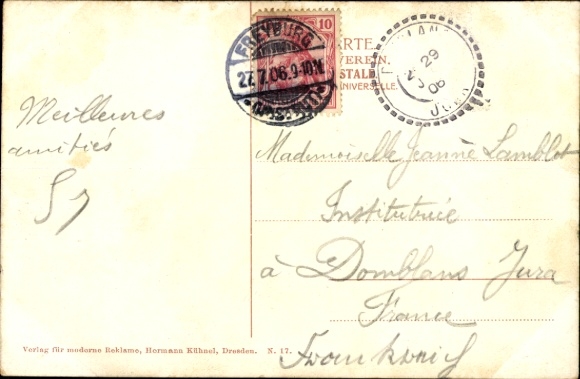 FREYBURG
27.7.06.9-10V.
10
KARTE.
VEREIN.
POSTALE.
UNIVERSELLE.
29
06
JURA
Meilleures
amitiés
Mademoiselle Jeanne Lamblot
Institutrice
à Domblans Jura
France
Frankreich
Verlag für moderne Reklame, Hermann Kühnel, Dresden. N. 17.